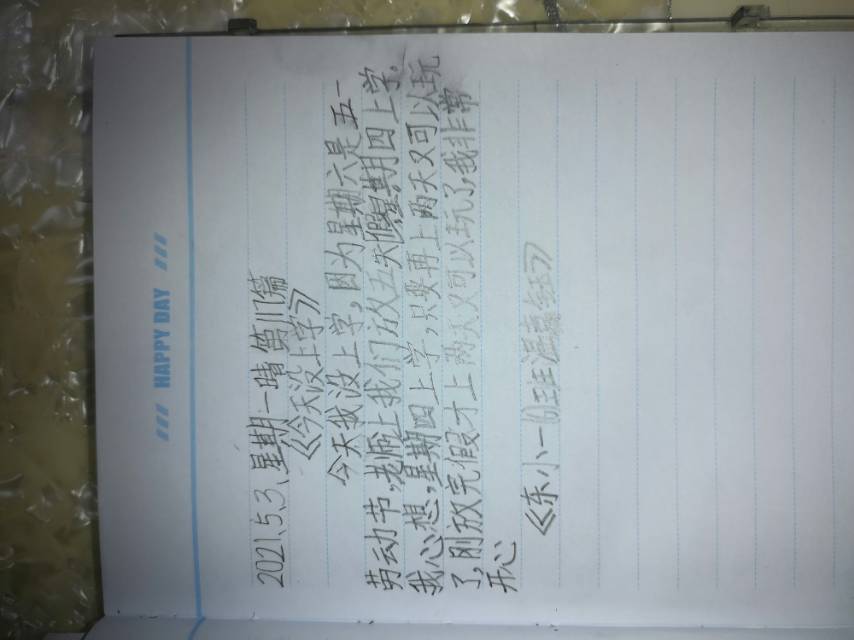 /// HAPPY DAY ///
2021.5.3、星期一晴 第117篇
《今天没上学》
今天我没上学，因为星期六是五一
劳动节，老师让我们放五天假星期四上学，
我心想，星期四上学，只要再上两天又可以玩
了，刚放完假才上两天又可以玩了，我非常
开心
《东小一(1)班温